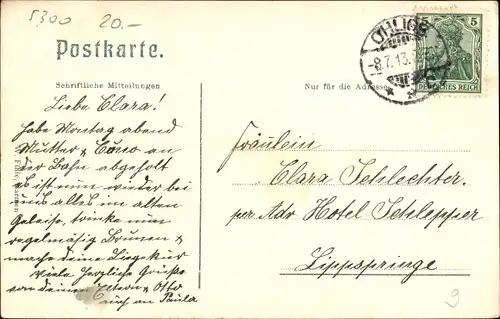 5300 20.-
Postkarte.
Schriftliche Mitteilungen
Nur für die Adresse
OHLIGS
-8.7.13.
5
DEUTSCHES REICH
Liebe Clara!
habe Montag abend
Mutter & Cuno an
der Bahn abgeholt
es ist nun wieder bei
uns alles im alten
Geleise, trinke nun
regelmäßig Brunnen &
mache deine Liegekur
Viele herzliche Grüße
von deinen Eltern & Otto
auch an Paula
Fräulein
Clara Schlechter.
per Adr Hotel Schlepper
Lippspringe
9